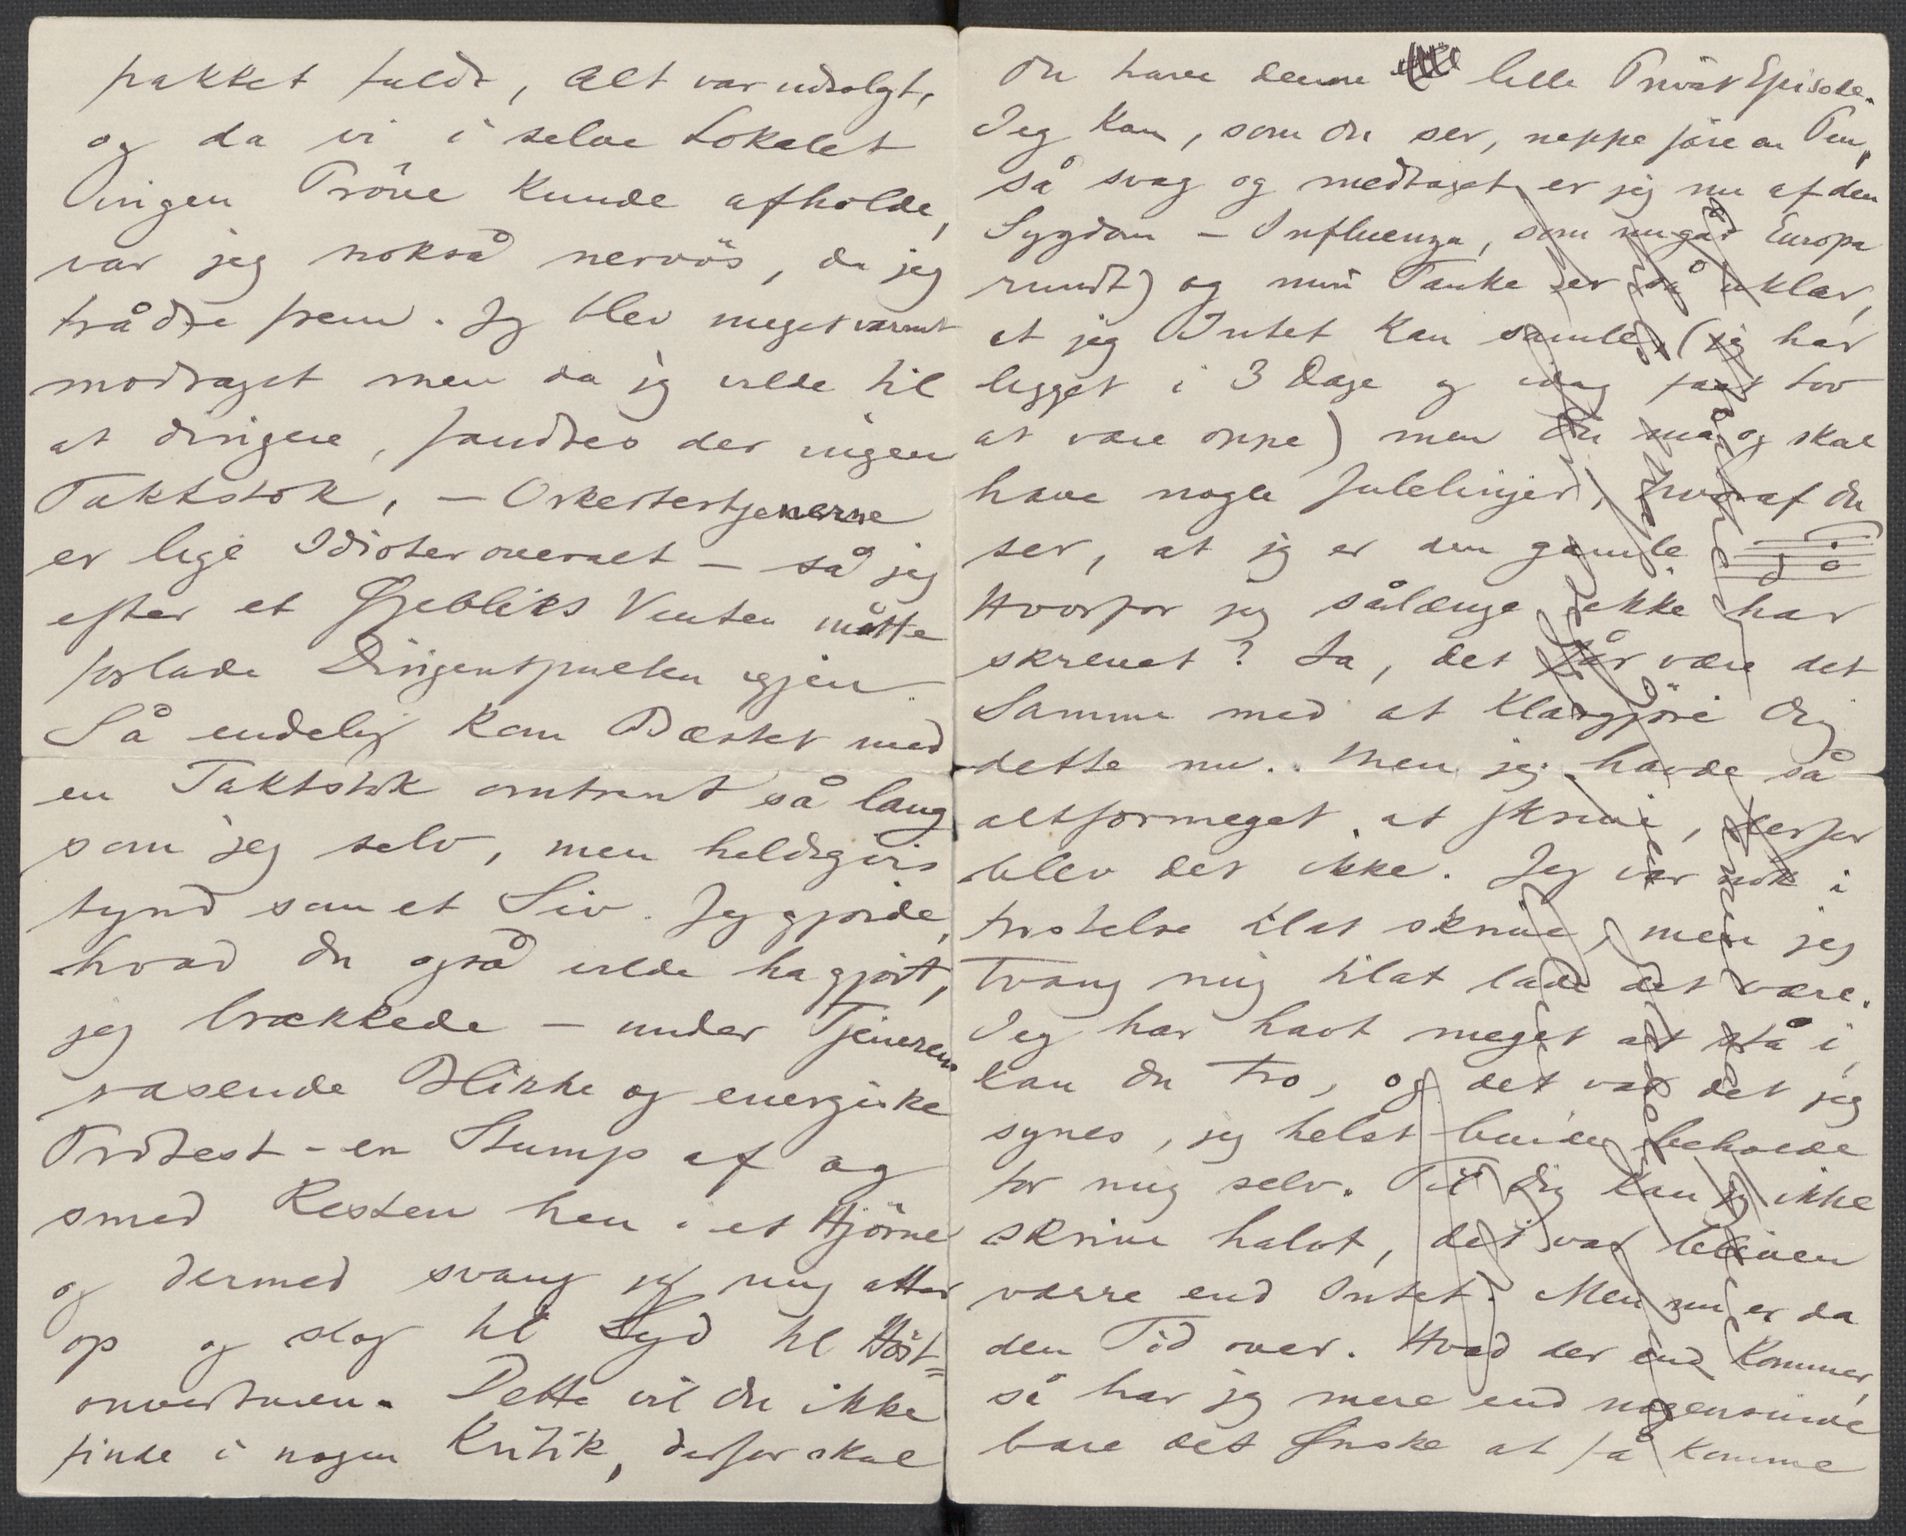 pakket fuldt, Alt var udsolgt,
og da vi i selve Lokalet
ingen Pröve kunde afholde,
var jeg nokså nervös, da jeg
trådte frem. Jeg blev meget varmt
modtaget men da jeg vilde til
at dirigere, fandtes der ingen
Taktstok, – Orkestertjenerne
er lige Idioter overalt – så jeg
efter et Øjebliks Venten måtte
forlade Dirigentpulten igjen.
Så endelig kom Bæstet med
en Taktstok omtrent så lang
som jeg selv, men heldigvis
tynd som et Siv. Jeg gjorde,
hvad du også vilde ha gjort,
jeg brækkede – under Tjenerens
rasende Blikke og energiske
Protest – en Stump af og
smed Resten hen i et Hjörne
og dermed svang jeg mig atter
op og slog til Lyd til Höst=
ouverturen. Dette vil du ikke
finde i nogen Kritik, derfor skal
du have denne lille Privat Episode.
Jeg kan, som du ser, neppe före en Pen,
så svag og medtaget er jeg nu af den
Sygdom – Influenza, som nu går Europa
rundt) og min Tanke er så uklar,
at jeg Intet kan samle, (jeg har
ligget i 3 Dage og idag faat lov
at være oppe) men du må og skal
have nogle Julelinjer, hvoraf du
ser, at jeg er den gamle.
Hvorfor jeg sålænge ikke har
skrevet? Ja, det får være det
Samme med at klargjöre dig
dette nu. Men jeg havde så
altformeget at skrive, derfor
blev det ikke. Jeg var nok i
fristelse tilat skrive, men jeg
tvang mig tilat lade det være.
Jeg har havt meget at stå i,
kan du tro, og det var det jeg
synes, jeg helst burde beholde
for mig selv. Til dig kan jeg ikke
skrive halvt, det var bleven
værre end Intet. Men nu er da
den Tid over. Hvad der end kommer,
så har jeg mere end nogensinde
bare det Ønske at få komme